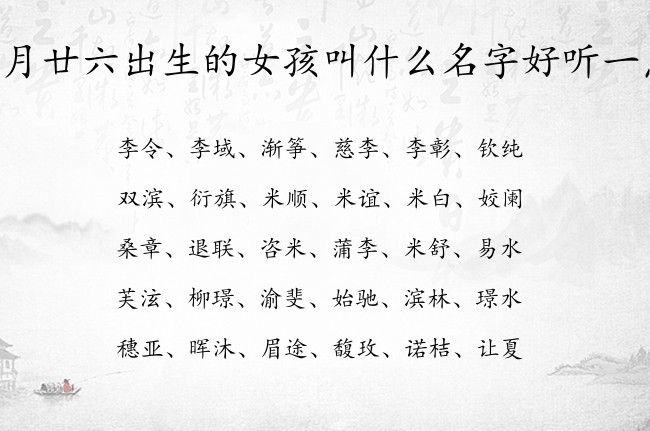 月廿六出生的女孩叫什么名字好听一
李令、李域、渐筝、慈李、李彰、钦纯
双滨、衍旗、米顺、米谊、米白、姣阑
桑章、退联、咨米、蒲李、米舒、易水
芙泫、柳璟、渝斐、始驰、滨林、璟水
穗亚、晖沐、眉途、馥玫、诺桔、让夏